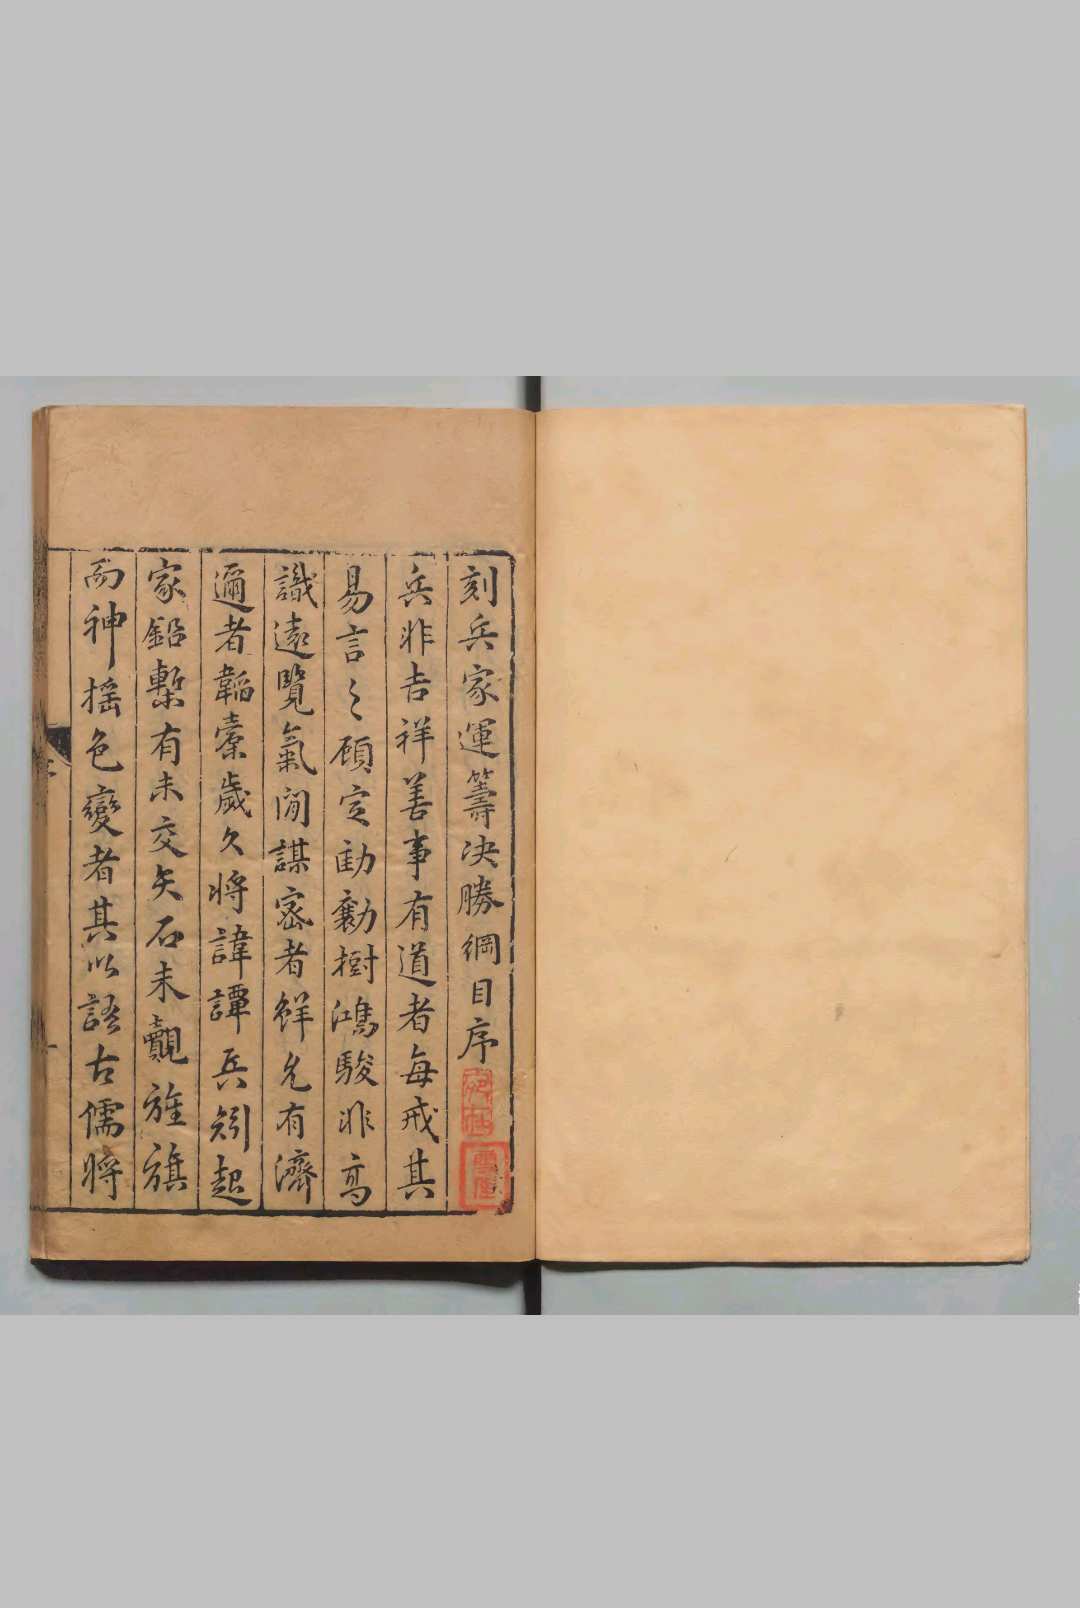 刻兵家運籌决勝綱目序
兵非吉祥善事有道者每戒其
易言之顧定勛勷樹鴻駿非高
識遠覽氣閒謀密者鮮克有濟
邇者韜櫜歲久將諱譚兵矧起
家鉛槧有未交矢石未覿旌旗
而神搖色變者其以語古儒將